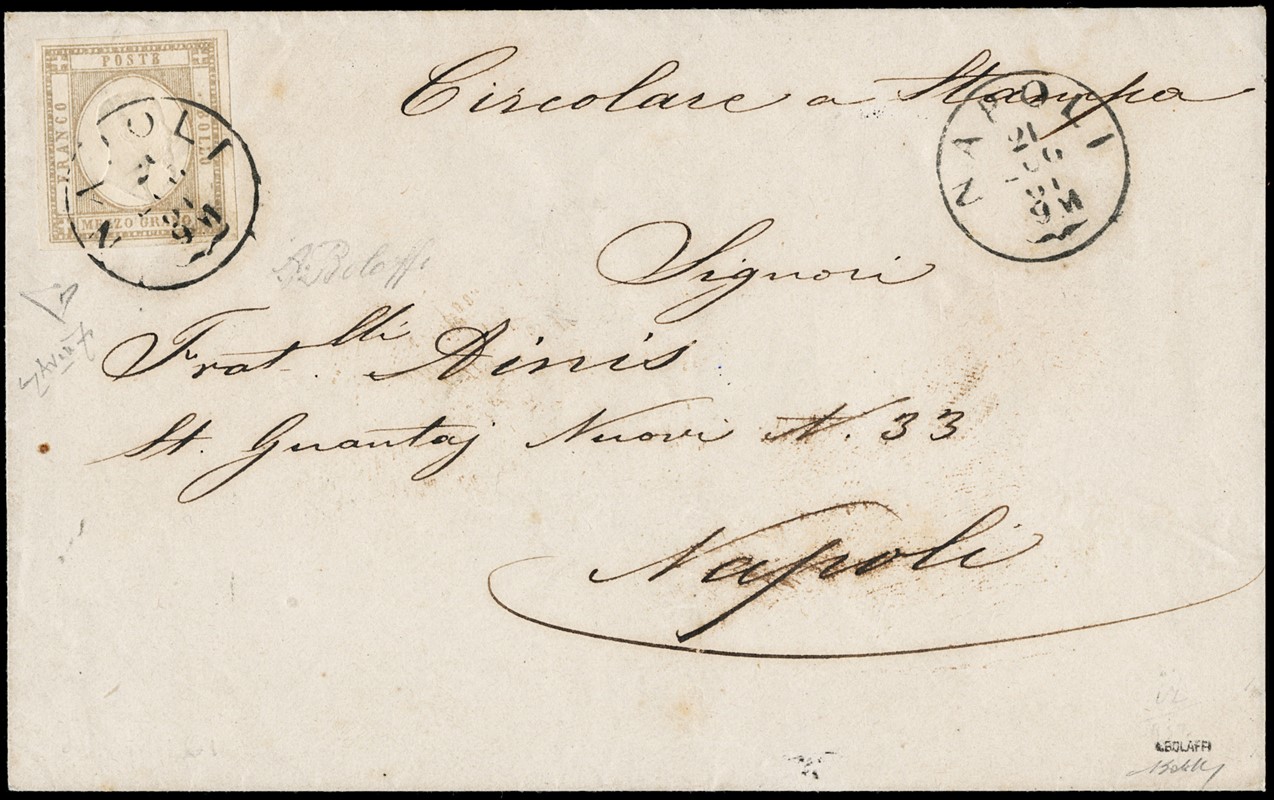 POSTE
FRANCO
BOLLO
MEZZO GRANO
NAPOLI
Circolare a Stampa
NAPOLI
21
9M
A. Bolaffi
Signori
Frat.lli Ainis
St. Guantaj Nuovi N. 33
Napoli
A.BOLAFFI